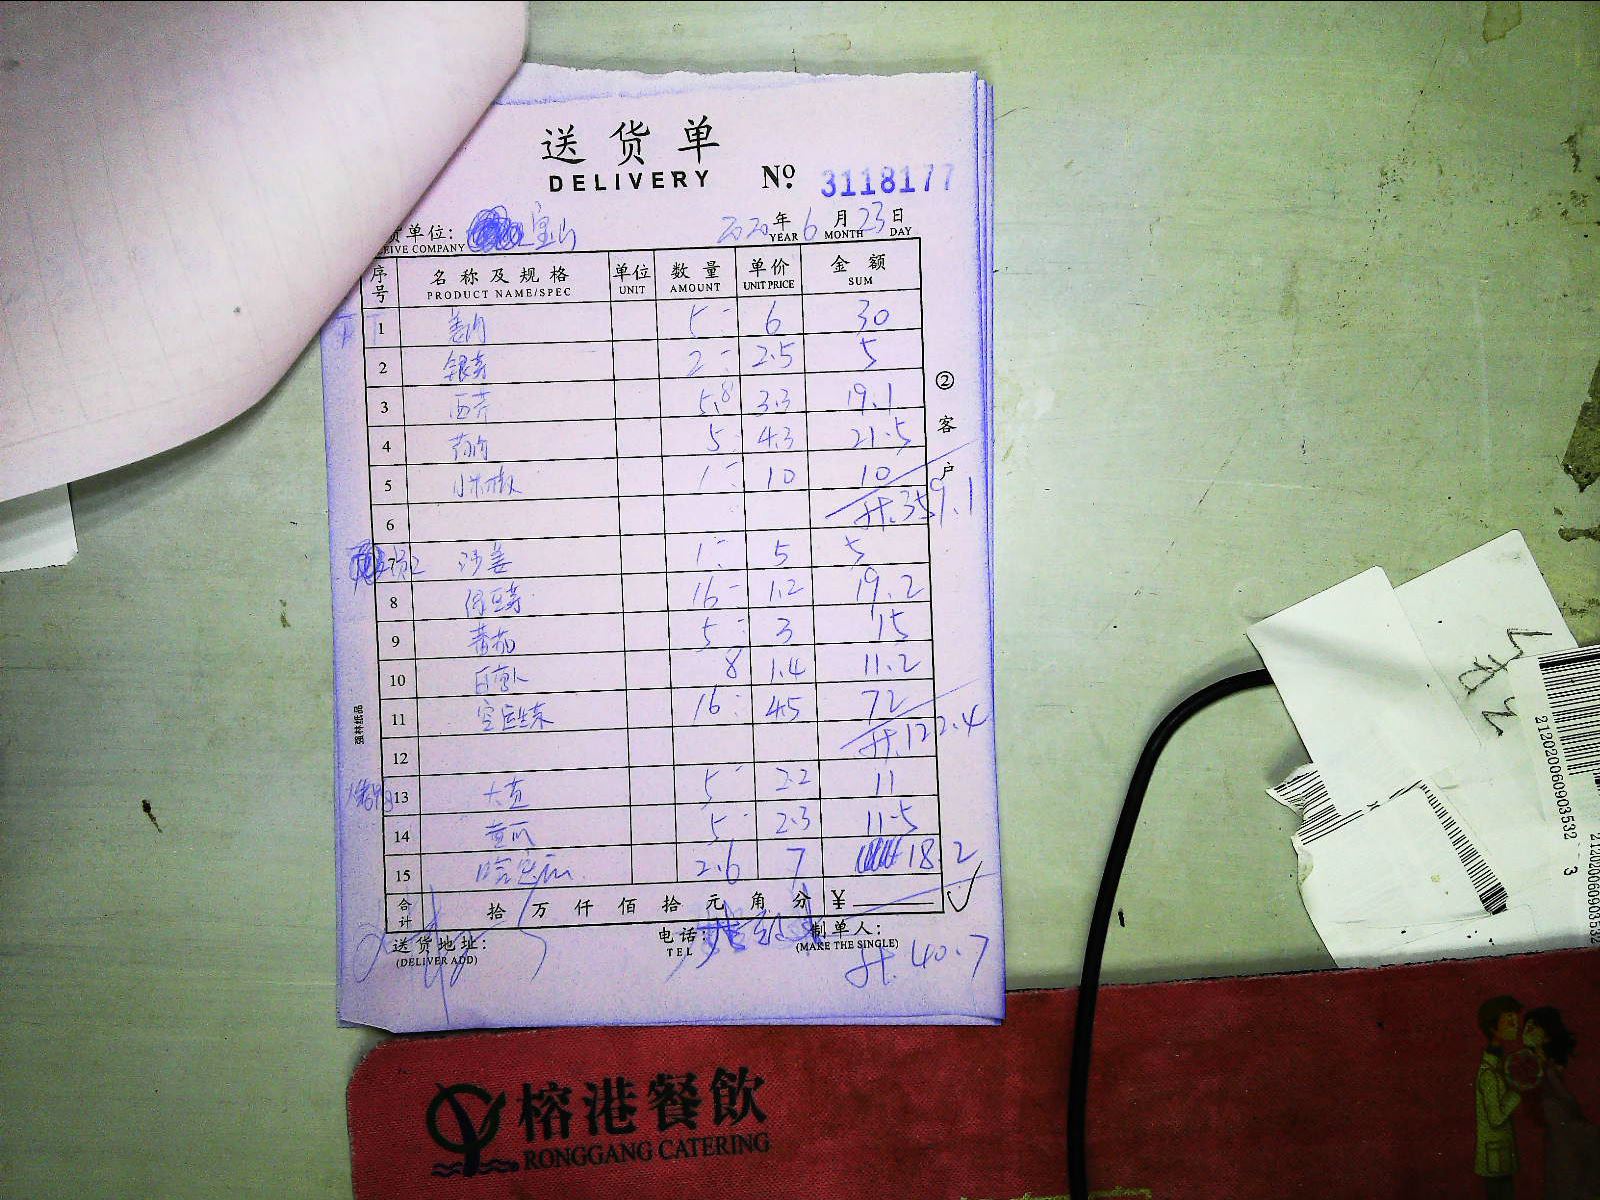 送货单
DELIVERY No. 3118177
货单位: 宝山 2020年6月23日
EIVE COMPANY YEAR MONTH DAY
序号 名称及规格 单位 数量 单价 金额
PRODUCT NAME/SPEC UNIT AMOUNT UNIT PRICE SUM
1 姜肉 5 6 30
2 银芽 2 2.5 5
3 西芹 5.8 3.3 19.1
4 5 4.3 21.5
5 小米椒 1 10 10
6 计.359.1
7 沙姜 1 5 5
8 16 1.2 19.2
9 番茄 5 3 15
10 8 1.4 11.2
11 16 4.5 72
12 计.122.4
13 5 2.2 11
14 黄瓜 5 2.3 11.5
15 2.6 7 18.2
合计 拾万仟佰拾元角分 ¥
送货地址: 电话: 制单人:
(DELIVER ADD) TEL (MAKE THE SINGLE)
计.40.7
②客户
强林纸品
榕港餐飲
RONGGANG CATERING
2120200609035323